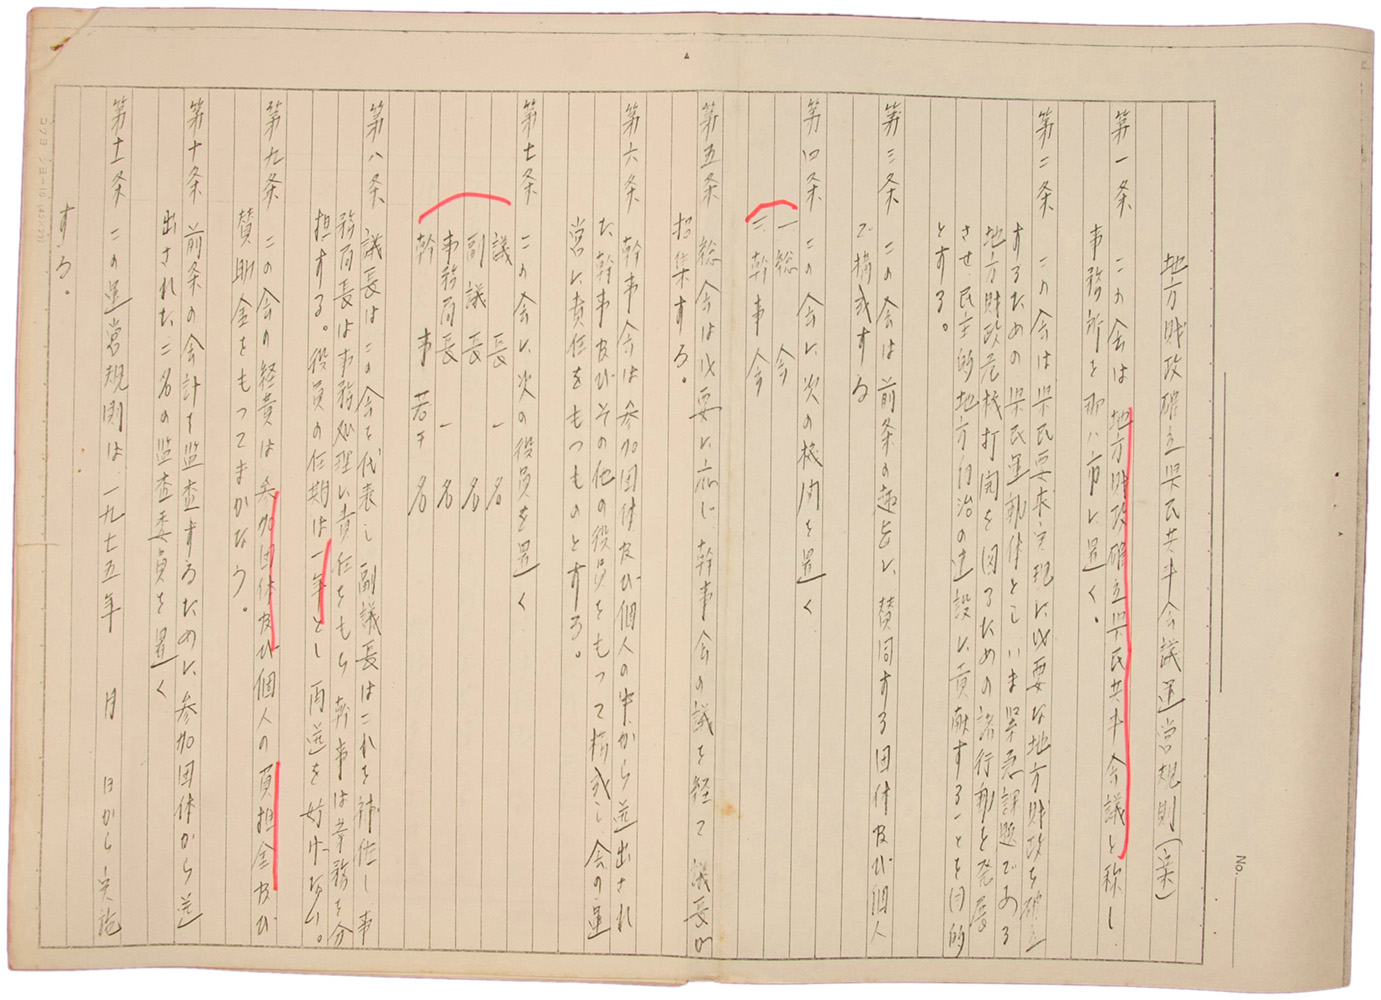 地方財政確立県民共斗会議運営規則(案)
第一条 この会は地方財政確立県民共斗会議と称し
事務所を那八市に置く。
第二条 この会は県民要求実現に必要な地方財政を確立
するための県民運動体としいま緊急課題である
地方財政危機打開を図るための諸行動を発展
させ、民主的地方自治の建設に貢献することを目的
とする。
第三条 この会は前条の趣旨に賛同する団体及び個人
で構成する
第四条 この会に次の機関を置く
一、総会
二、幹事会
第五条 総会は必要に応じ幹事会の議を経て議長が
招集する。
第六条 幹事会は参加団体及び個人の中から選出され
た幹事及びその他の役員をもって構成し、会の運
営に責任をもつものとする。
第七条 この会に次の役員を置く
議長 一名
副議長 名
事務局長 一名
幹事 若干名
第八条 議長はこの会を代表し副議長はこれを補佐し事
務局長は事務処理に責任をもち幹事は業務を分
担する。役員の任期は一年とし再選を妨げない。
第九条 この会の経費は参加団体及び個人の負担金及び
賛助金をもってまかなう。
第十条 前条の会計を監査するために参加団体から選
出された二名の監査委員を置く
第十一条 この運営規則は、一九七五年 月 日から実施
する。
No.
コクヨ